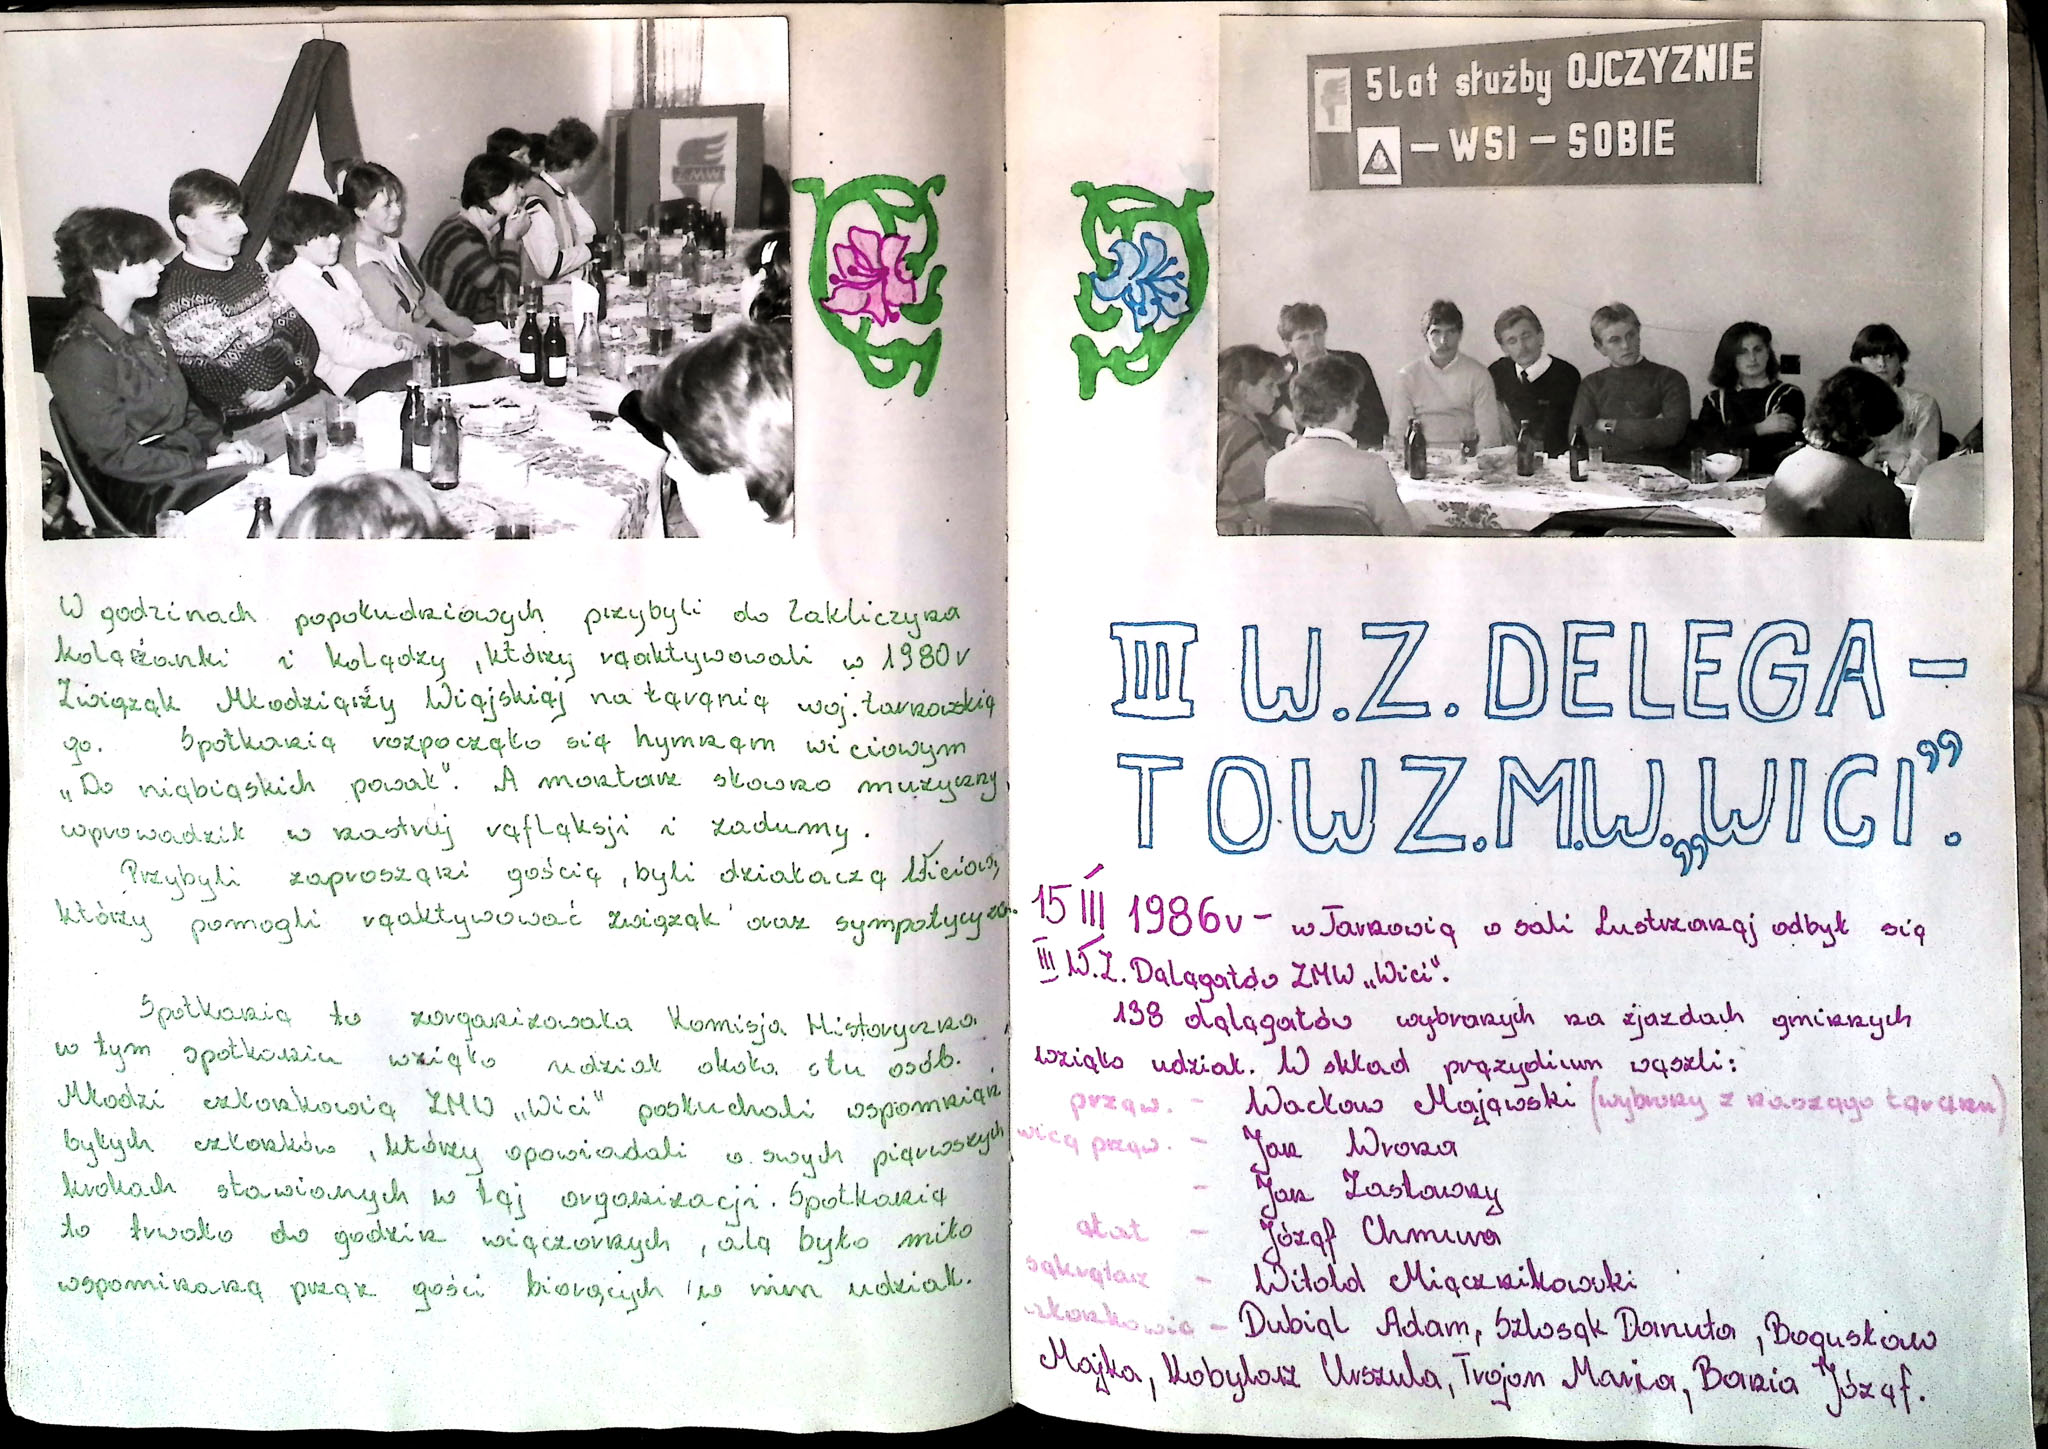 ZMW
W godzinach popołudniowych przybyli do Zakliczyna
koleżanki i koledzy, którzy reaktywowali w 1980r
Związek Młodzieży Wiejskiej na terenie woj. tarnowskie
go. Spotkanie rozpoczęło się hymnem wiciowym
„Do niebieskich pował". A montaż słowno muzyczny
wprowadził w nastrój refleksji i zadumy.
Przybyli zaproszeni goście, byli działacze Wiciowi,
którzy pomogli reaktywować związek oraz sympatycy
Spotkanie to zorganizowała Komisja Historyczna,
w tym spotkaniu wzięło udział około stu osób.
Młodzi członkowie ZMW „Wici" posłuchali wspomnień
byłych członków, którzy opowiadali o swych pierwszych
krokach stawianych w tej organizacji. Spotkanie
to trwało do godzin wieczornych, ale było miło
wspominane przez gości biorących w nim udział.
5 lat służby OJCZYZNIE
– WSI – SOBIE
III W.Z. DELEGA–
TOW Z.M.W. „WICI”.
15 III 1986r – w Tarnowie o sali Lustrzanej odbył się
III W.Z. Delegatów ZMW „Wici".
138 delegatów wybranych na zjazdach gminnych
wzięło udział. W skład prezydium weszli:
przew. – Wacław Majewski (wybrany z naszego terenu)
wice przew. – Jan Wrona
– Jan Zasławny
etat – Józef Chmura
sekretarz – Witold Mięcznikowski
członkowie – Dubiel Adam, Szlosek Danuta, Bogusław
Majka, Kobylarz Urszula, Trojan Maria, Bania Józef.